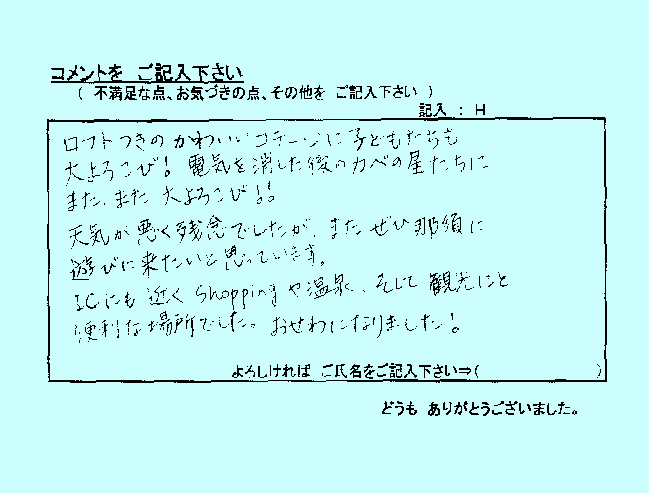 コメントを ご記入下さい
( 不満足な点、お気づきの点、その他を ご記入下さい )
記入 : H
ロフトつきの かわいいコテージに 子どもたちも
大よろこび! 電気を消した後のカベの星たちに
また、また 大よろこび!!
天気が悪く残念でしたが、またぜひ那須に
遊びに来たいと思っています。
ICにも近く shoppingや温泉、そして観光にと
便利な場所でした。おせわになりました!
よろしければ ご氏名をご記入下さい⇒( )
どうも ありがとうございました。